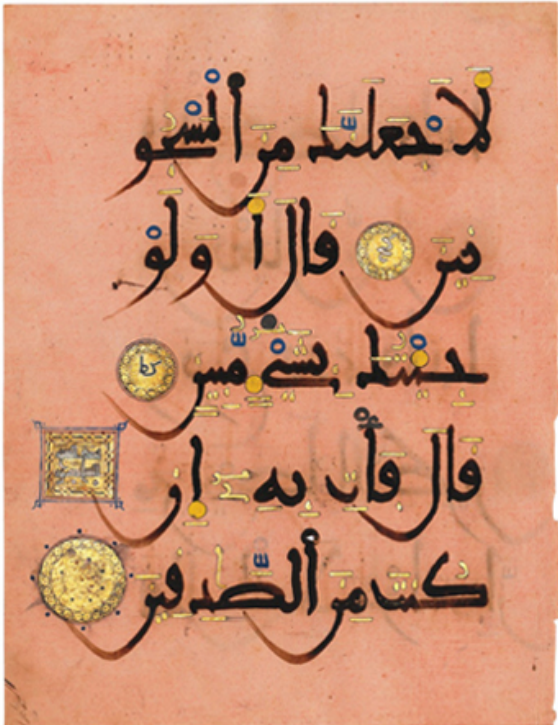 لأجعلنك من المسجو
نين قال أولو
جئتك بشيء مبين كط
قال فأت به إن
كنت من الصدقين